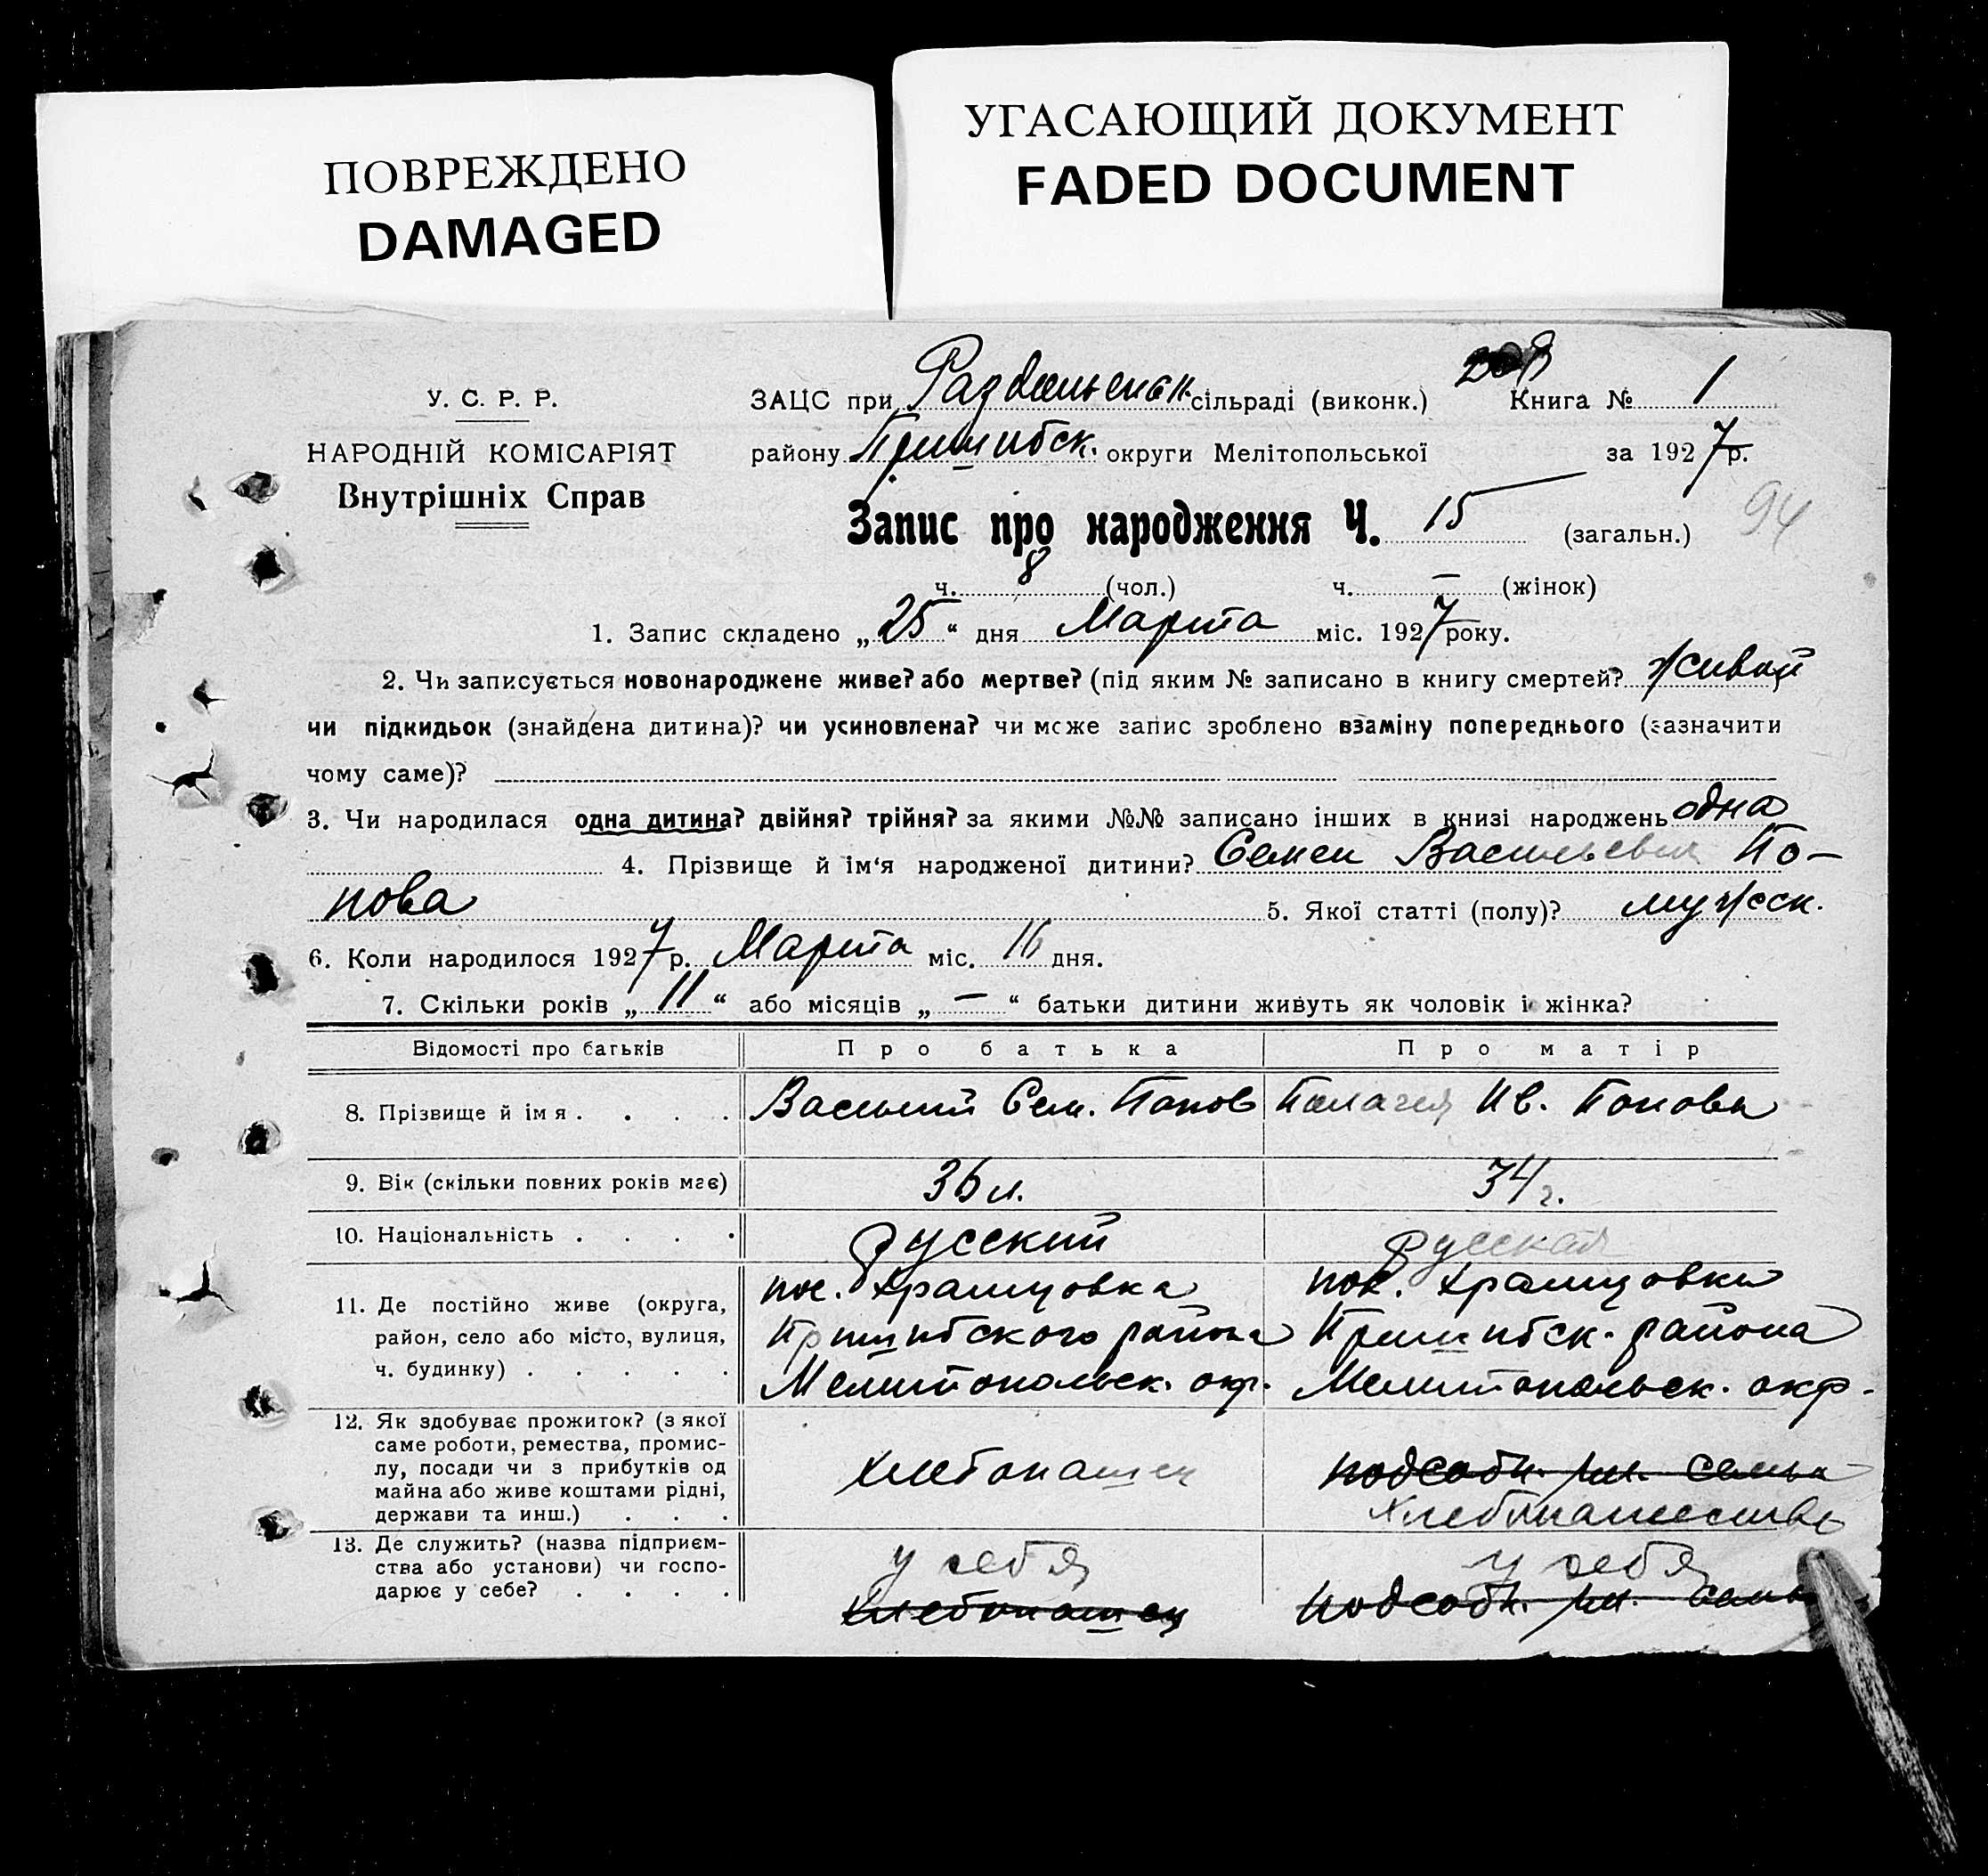 ПОВРЕЖДЕНО
DAMAGED
УГАСАЮЩИЙ ДОКУМЕНТ
FADED DOCUMENT
У. С. Р. Р.
НАРОДНІЙ КОМІСАРІЯТ
Внутрішніх Справ
ЗАЦС при Раздольенск. сільраді (виконк.) Книга № 1
району Пришибск. округи Мелітопольської за 1927 р.
Запис про народження Ч. 15 (загальн.) 94
ч. 8 (чол.) ч. — (жінок)
1. Запис складено „25“ дня Марта міс. 1927 року.
2. Чи записується новонароджене живе? або мертве? (під яким № записано в книгу смертей? живой
чи підкидьок (знайдена дитина)? чи усиновлена? чи може запис зроблено взаміну попереднього (зазначити
чому саме)?
3. Чи народилася одна дитина? двійня? трійня? за якими №№ записано інших в книзі народжень одна
4. Прізвище й ім‘я народженої дитини? Семен Васильевич По-
пова 5. Якої статті (полу)? мужск.
6. Коли народилося 1927 р. Марта міс. 16 дня.
7. Скільки років „11“ або місяців „—“ батьки дитини живуть як чоловік і жінка?
Відомості про батьків Про батька Про матір
8. Прізвище й імя . . . . Василий Сем. Попов Пелагея Ив. Попова
9. Вік (скільки повних років має) 36 л. 34 г.
10. Національність . . . . русский русская
11. Де постійно живе (округа, пос. Храмцовка пос. Храмцовка
район, село або місто, вулиця, Пришибского района Пришибск. района
ч. будинку) . . . . . Мелитопольск. окр. Мелитопольск. окр.
12. Як здобуває прожиток? (з якої
саме роботи, ремества, промис-
лу, посади чи з прибутків од хлебопашец подсобн. чл. семьи
майна або живе коштами рідні,
держави та инш.) . . . хлебопашество
13. Де служить? (назва підприєм-
ства або установи) чи госпо- у себя у себя
дарює у себе? . . . . хлебопашец подсобн. чл. семьи